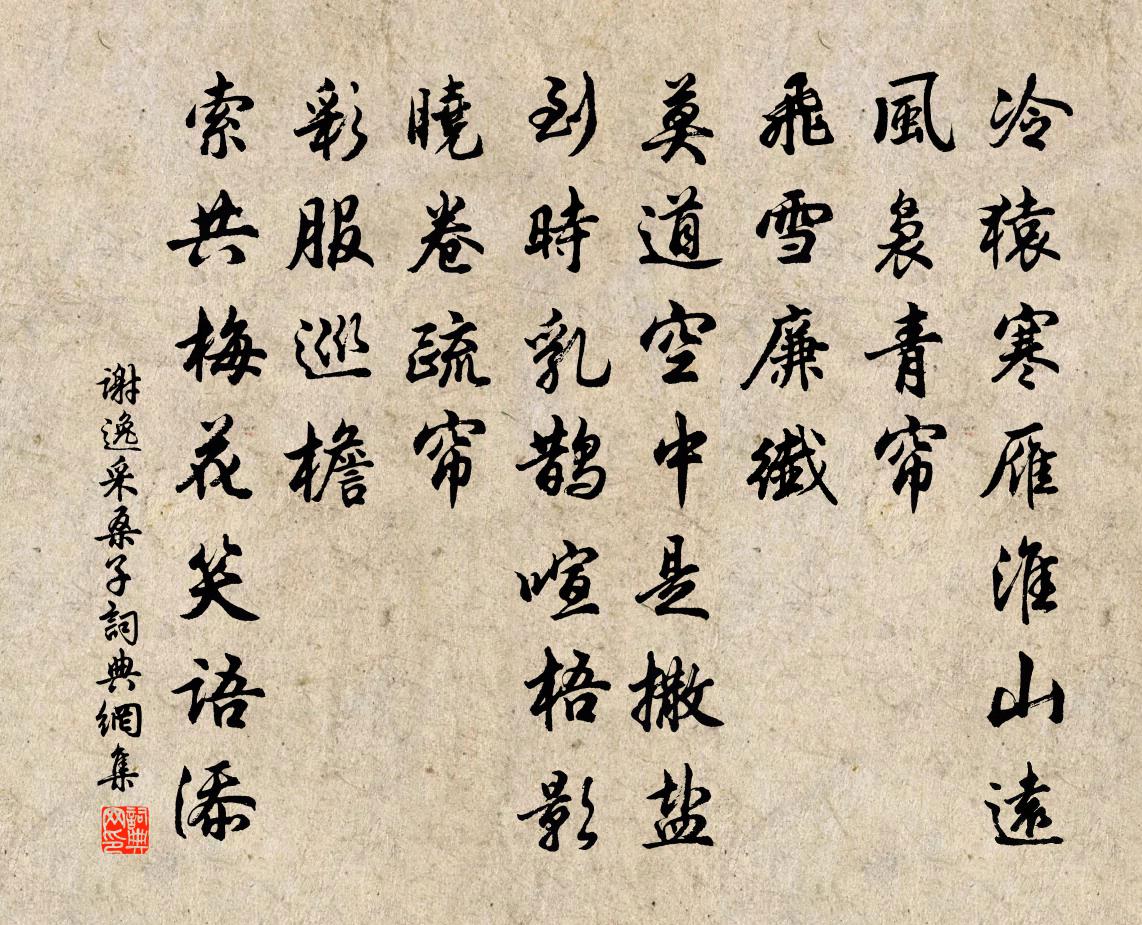 冷猿寒雁淮山遠
風裊青帘
飛雪廉纖
莫道空中是撒盐
到時乳鵲喧梧影
曉卷疏帘
彩服巡檐
索共梅花笑语添
謝逸采桑子詞典網集
詞典网印